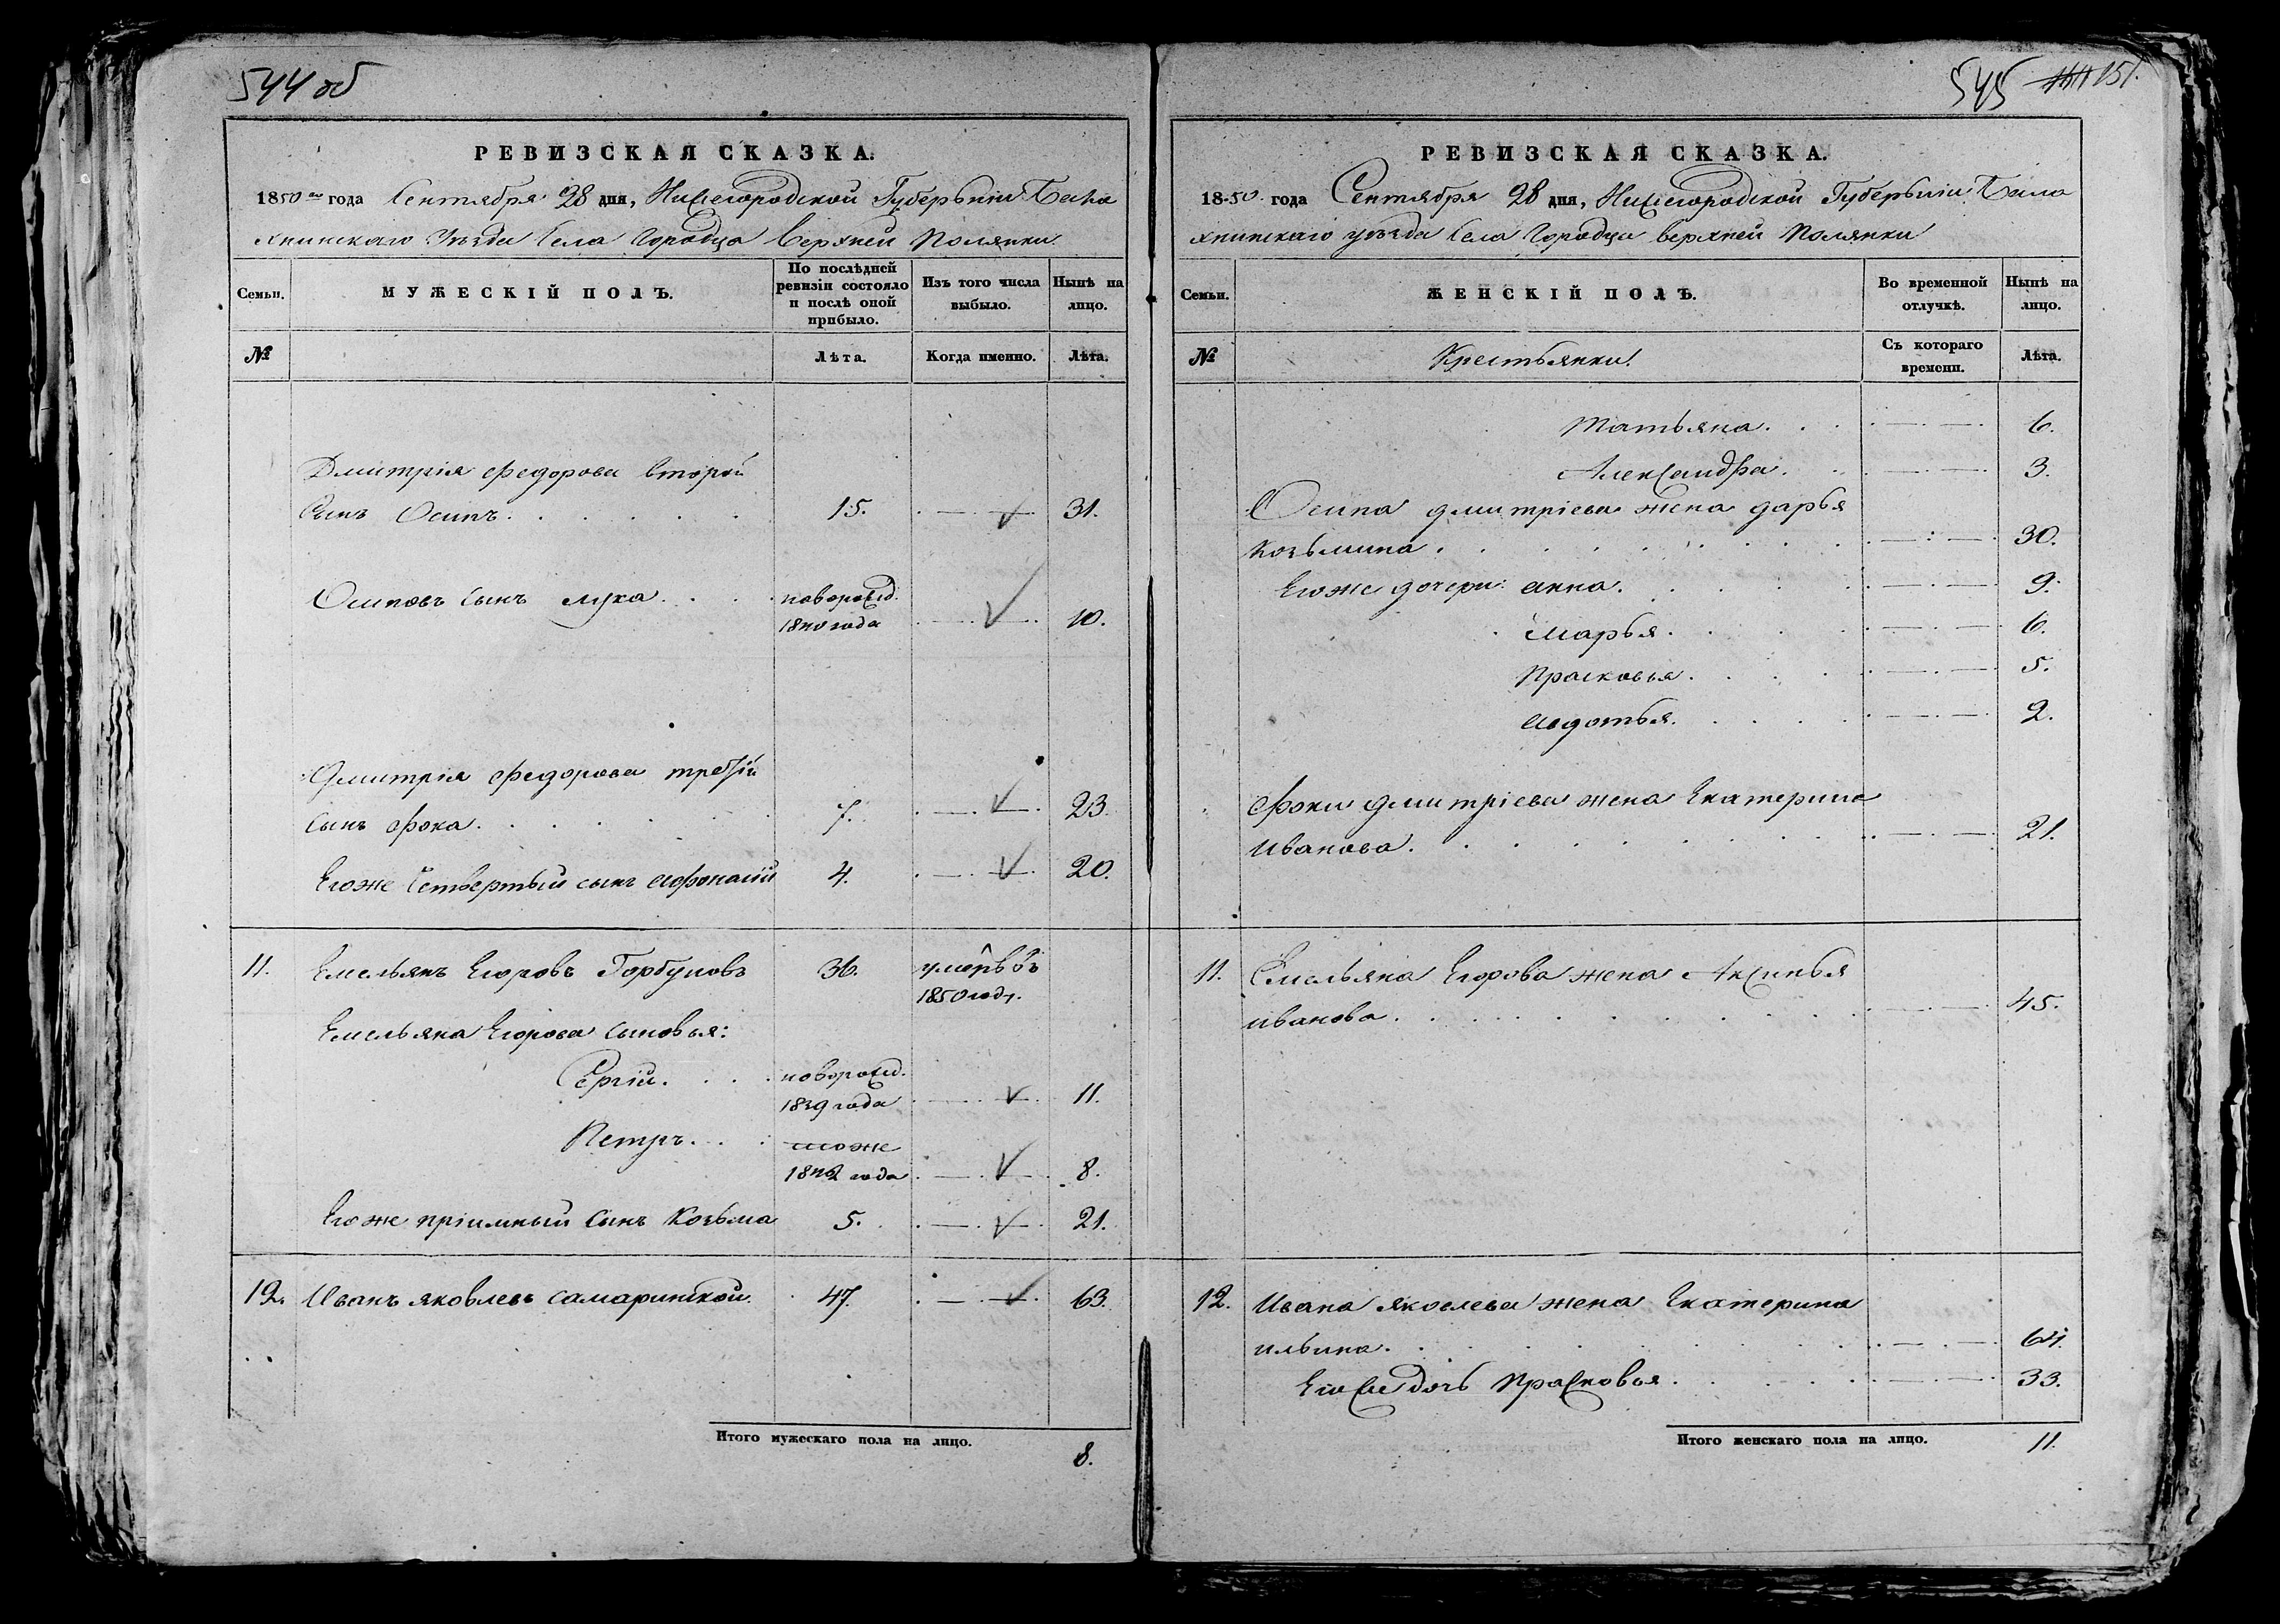 544 об
РЕВИЗСКАЯ СКАЗКА.
1850 го года Сентября 28 дня, Нижегородской Губерьнии Бала
хнинскаго Уѣзда Села Городца Верхней Полянки
Семьи.
МУЖЕСКІЙ ПОЛЪ.
По послѣдней
ревизіи состояло
и послѣ оной
прибыло.
Изъ того числа
выбыло.
Нынѣ на
лицо.
№
Лѣта.
Когда именно.
Лѣта.
Дмитрія Федорова второй
Сынъ Осипъ. 15. 31.
Осиповъ сынъ Лука. новорожд.
1840 года 10.
Дмитрія Федорова третій
сынъ Фока. 7. 23.
Егоже Четвертый сынъ Афонасій 4. 20.
11. Емельянъ Егоровъ Горбуновъ 36. умеръ въ
1850 году.
Емельяна Егорова сыновья:
Сергій. новорожд.
1839 года 11.
Петръ. тоже
1842 года 8.
Егоже пріимный сынъ Козьма 5. 21.
12. Иванъ Яковлевъ Самаринской. 47. 63.
Итого мужескаго пола на лицо. 8.
545 151.
РЕВИЗСКАЯ СКАЗКА.
1850. года Сентября 28 дня, Нижегородской Губерьнии Бала
хнинскаго уѣзда Села Городца верхней Полянки
Семьи.
ЖЕНСКІЙ ПОЛЪ.
Во временной
отлучкѣ.
Нынѣ на
лицо.
№
Крестьянки.
Съ котораго
времени.
Лѣта.
Татьяна. 6.
Александра. 3.
Осипа Дмитріева жена Дарья
Козьмина. 30.
Егоже дочери: Анна. 9.
Марья. 6.
Прасковья. 5.
Авдотья. 2.
Фоки Дмитріева жена Екатерина
Иванова. 21.
11. Емельяна Егорова жена Аксинья
Иванова. 45.
12. Ивана Яковлева жена Екатерина
Ильина. 64.
Егоже дочь Прасковья. 33.
Итого женскаго пола на лицо. 11.